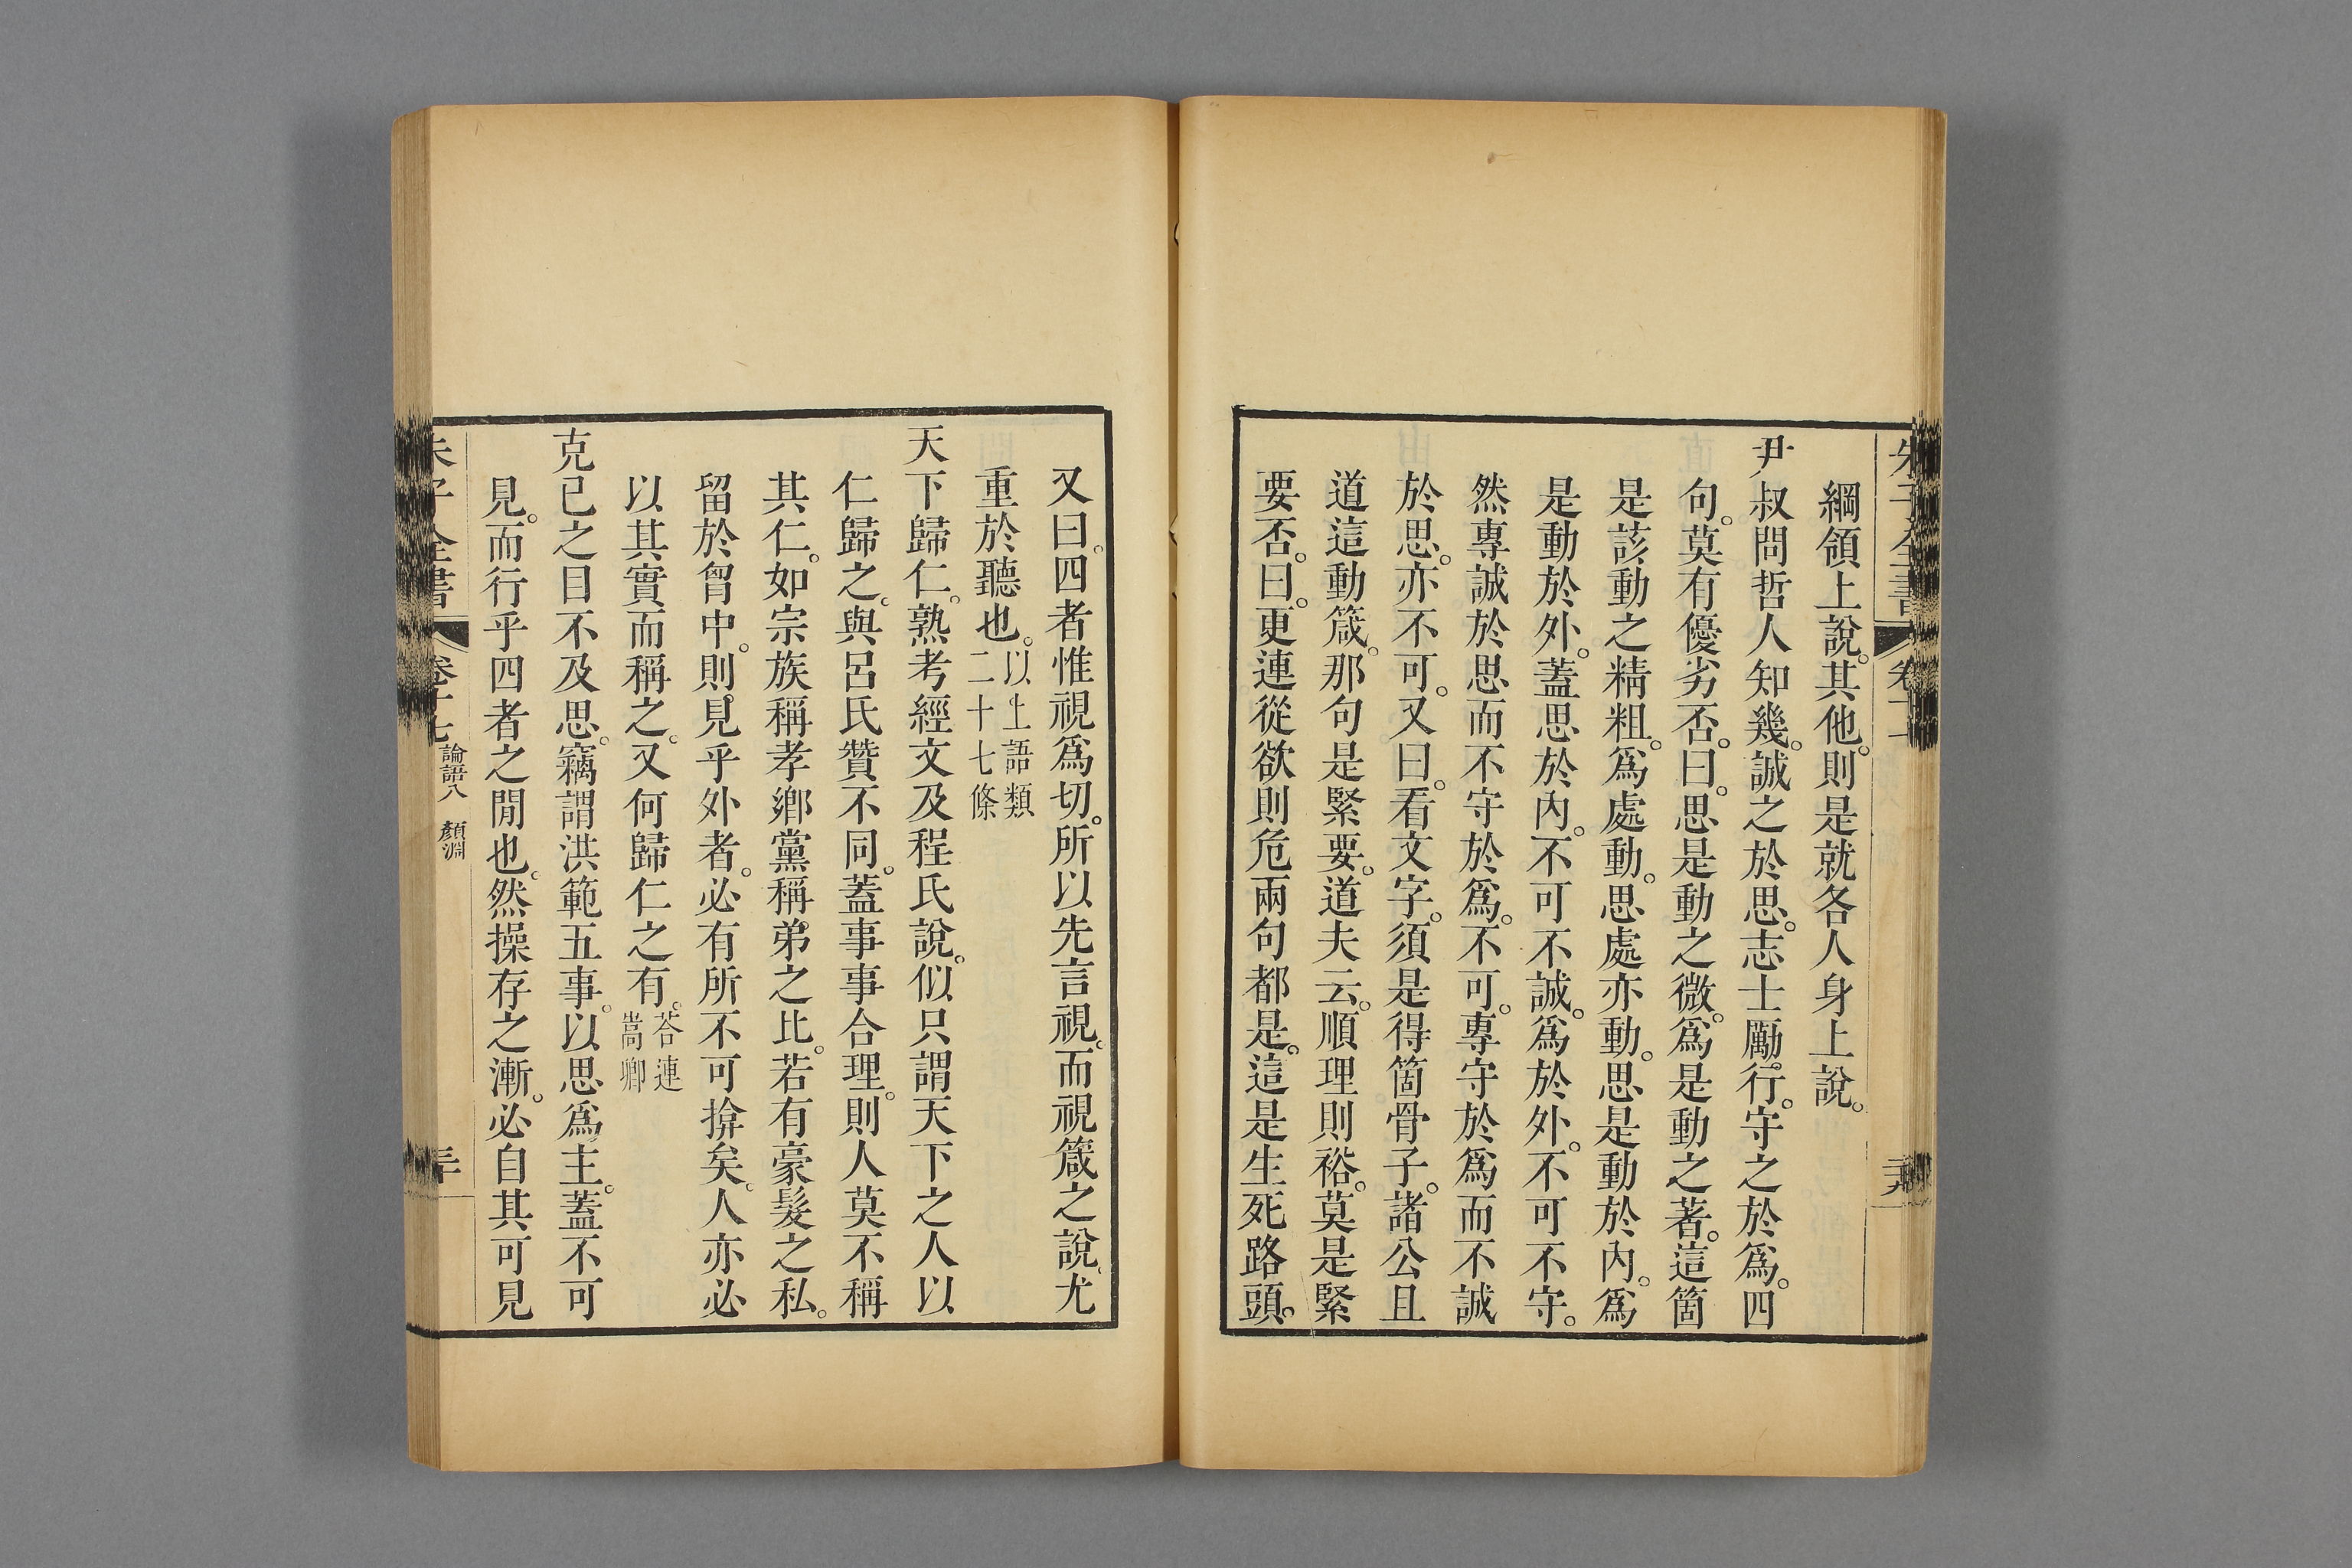 朱子全書 卷十
綱領上說。其他。則是就各人身上說。
尹叔問哲人知幾。誠之於思。志士厲行。守之於爲。四
句。莫有優劣否。曰。思是動之微。爲是動之著。這箇
是該動之精粗。爲處動。思處亦動。思是動於內。爲
是動於外。蓋思於內。不可不誠。爲於外。不可不守。
然專誠於思而不守於爲。不可。專守於爲而不誠
於思。亦不可。又曰。看文字。須是得箇骨子。諸公且
道這動箴。那句是緊要。道夫云。順理則裕。莫是緊
要否。曰。更連從欲則危兩句都是。這是生死路頭。
又曰。四者惟視爲切。所以先言視。而視箴之說。尤
重於聽也。以上語類
二十七條
天下歸仁。熟考經文及程氏說。似只謂天下之人以
仁歸之。與呂氏贊不同。蓋事事合理。則人莫不稱
其仁。如宗族稱孝鄉黨稱弟之比。若有豪髮之私。
留於胷中。則見乎外者。必有所不可揜矣。人亦必
以其實而稱之。又何歸仁之有。荅連
嵩卿
克己之目不及思。竊謂洪範五事。以思爲主。蓋不可
見。而行乎四者之閒也。然操存之漸。必自其可見
朱子全書 卷十七 論語八 顏淵